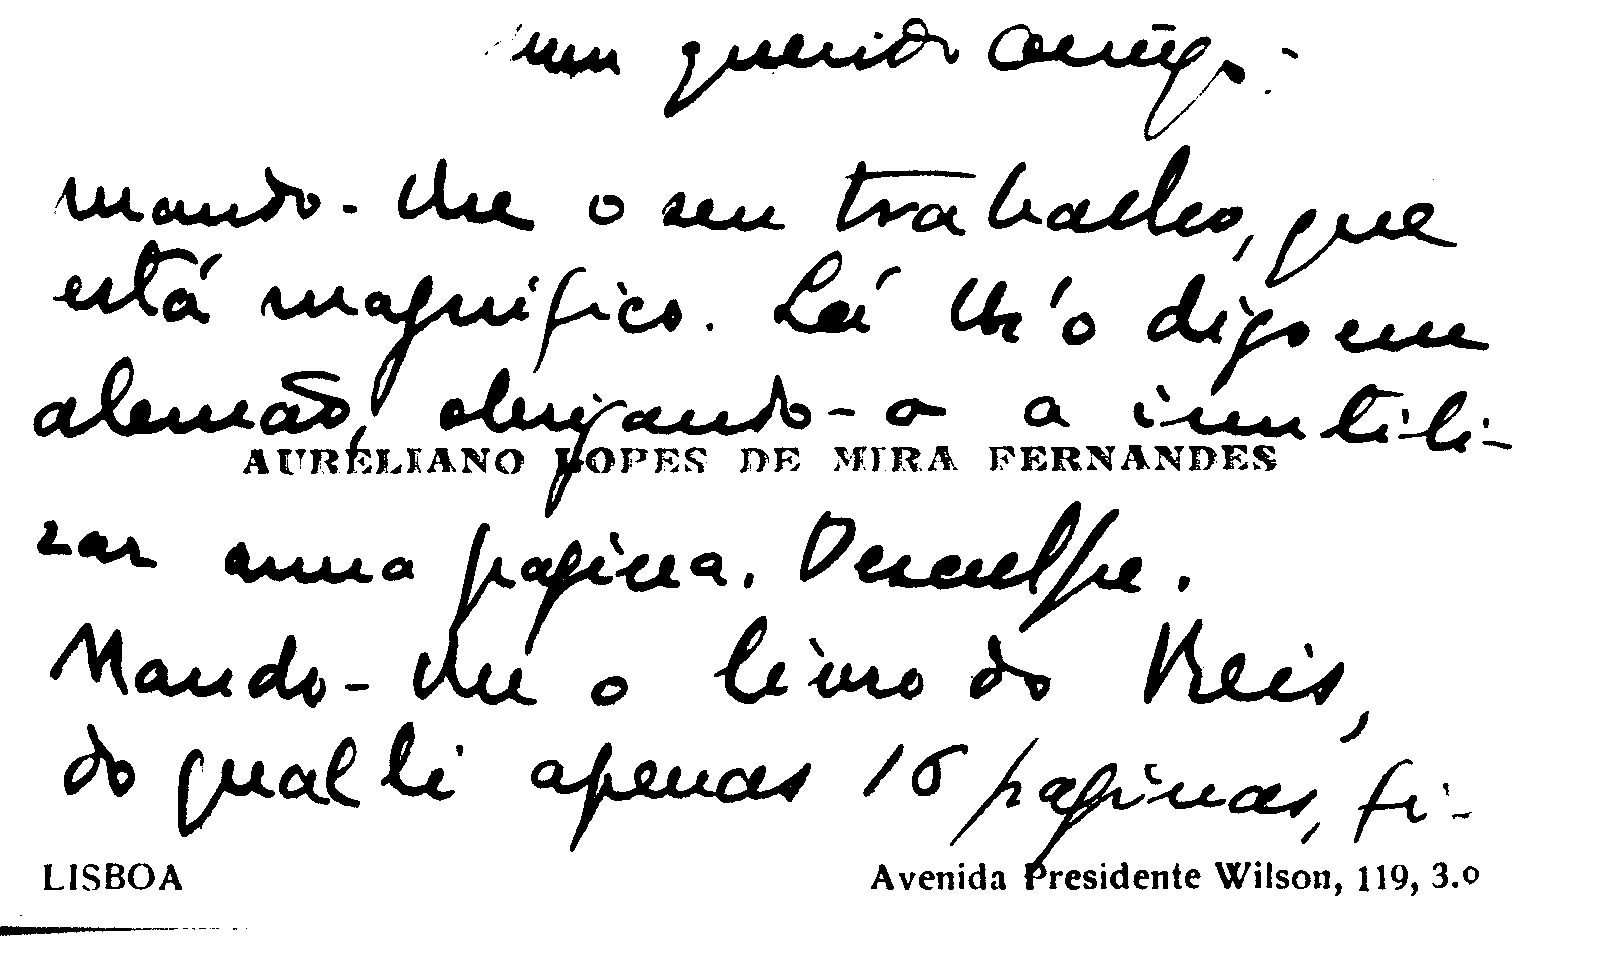 meu querido amigo. -
mando-lhe o seu trabalho, que
está magnífico. Lá lh'o digo em
alemão, obrigando-o a inutili-
AURELIANO LOPES DE MIRA FERNANDES
zar uma pagina. Desculpe.
Mando-lhe o livro do Reis,
do qual li apenas 16 paginas, fi-
LISBOA
Avenida Presidente Wilson, 119, 3.º